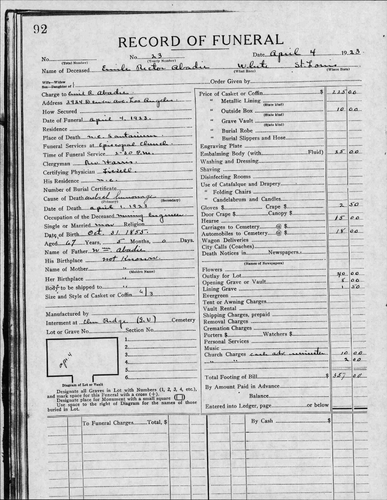 92
RECORD OF FUNERAL
No. 23 Date April 4 1923
(Total Number) (Yearly Number)
Name of Deceased Emile Rector Abadie White St. Louis
(What Race) (Where Born)
Charge to Emil R. Abadie
Los Angeles
How Secured
Date of Funeral April 4, 1923.
Residence
Place of Death N.C. Sanitarium
Funeral Services at Episcopal Church
Time of Funeral Service 2:30 P.M.
Clergyman Rev Harris
Certifying Physician
His Residence N.C.
Number of Burial Certificate
Cause of Death
Date of Death April 1923
Occupation of the Deceased Mining Engineer
Single or Married Religion
Date of Birth Oct 11. 1855.
Aged 67 Years 5 Months Days
Name of Father Wm Abadie
His Birthplace Not Known
Name of Mother
(Maiden Name)
Her Birthplace
Body to be shipped to
Size and Style of Casket or Coffin 6/3
Manufactured by
Interment at Cemetery
Lot or Grave No. Section No.
1.
2.
3.
4.
5.
6.
Diagram of Lot or Vault
Designate all Graves in Lot with Numbers (1, 2, 3, 4, etc.), and mark space for this Funeral with a cross (+).
Designate place for Monument with a small square
Use space to right of Diagram for the names of those buried in Lot.
To Funeral Charges, Total
Order Given by
Price of Casket or Coffin $ 215 00
" Metallic Lining
(State Kind)
" Outside Box 10 00
(State Kind)
" Grave Vault
(State Kind)
" Burial Robe
" Burial Slippers and Hose
Engraving Plate
Embalming Body (with Fluid) 25 00
Washing and Dressing
Shaving
Disinfecting Rooms
Use of Catafalque and Drapery
" Folding Chairs
" Candelabrum and Candles
Gloves $ Crape $ 2 50
Door Crape Canopy $
Hearse 15 00
Carriages to Cemetery @ $
Automobiles to Cemetery @ $ 18 00
Wagon Deliveries
City Calls (Coaches)
Death Notices in Newspapers
(Names of Newspapers)
Flowers
Outlay for Lot 40 00
Opening Grave or Vault 8 00
Lining Grave 1 50
Evergreen
Tent or Awning Charges
Vault Rental
Shipping Charges, prepaid
Removal Charges
Cremation Charges
Porters $ Watchers $
Personal Services
Music
Church Charges cash adv minister 10 00
Total Footing of Bill $ 357 00
By Amount Paid in Advance
Balance
Entered into Ledger, page or below
By Cash $